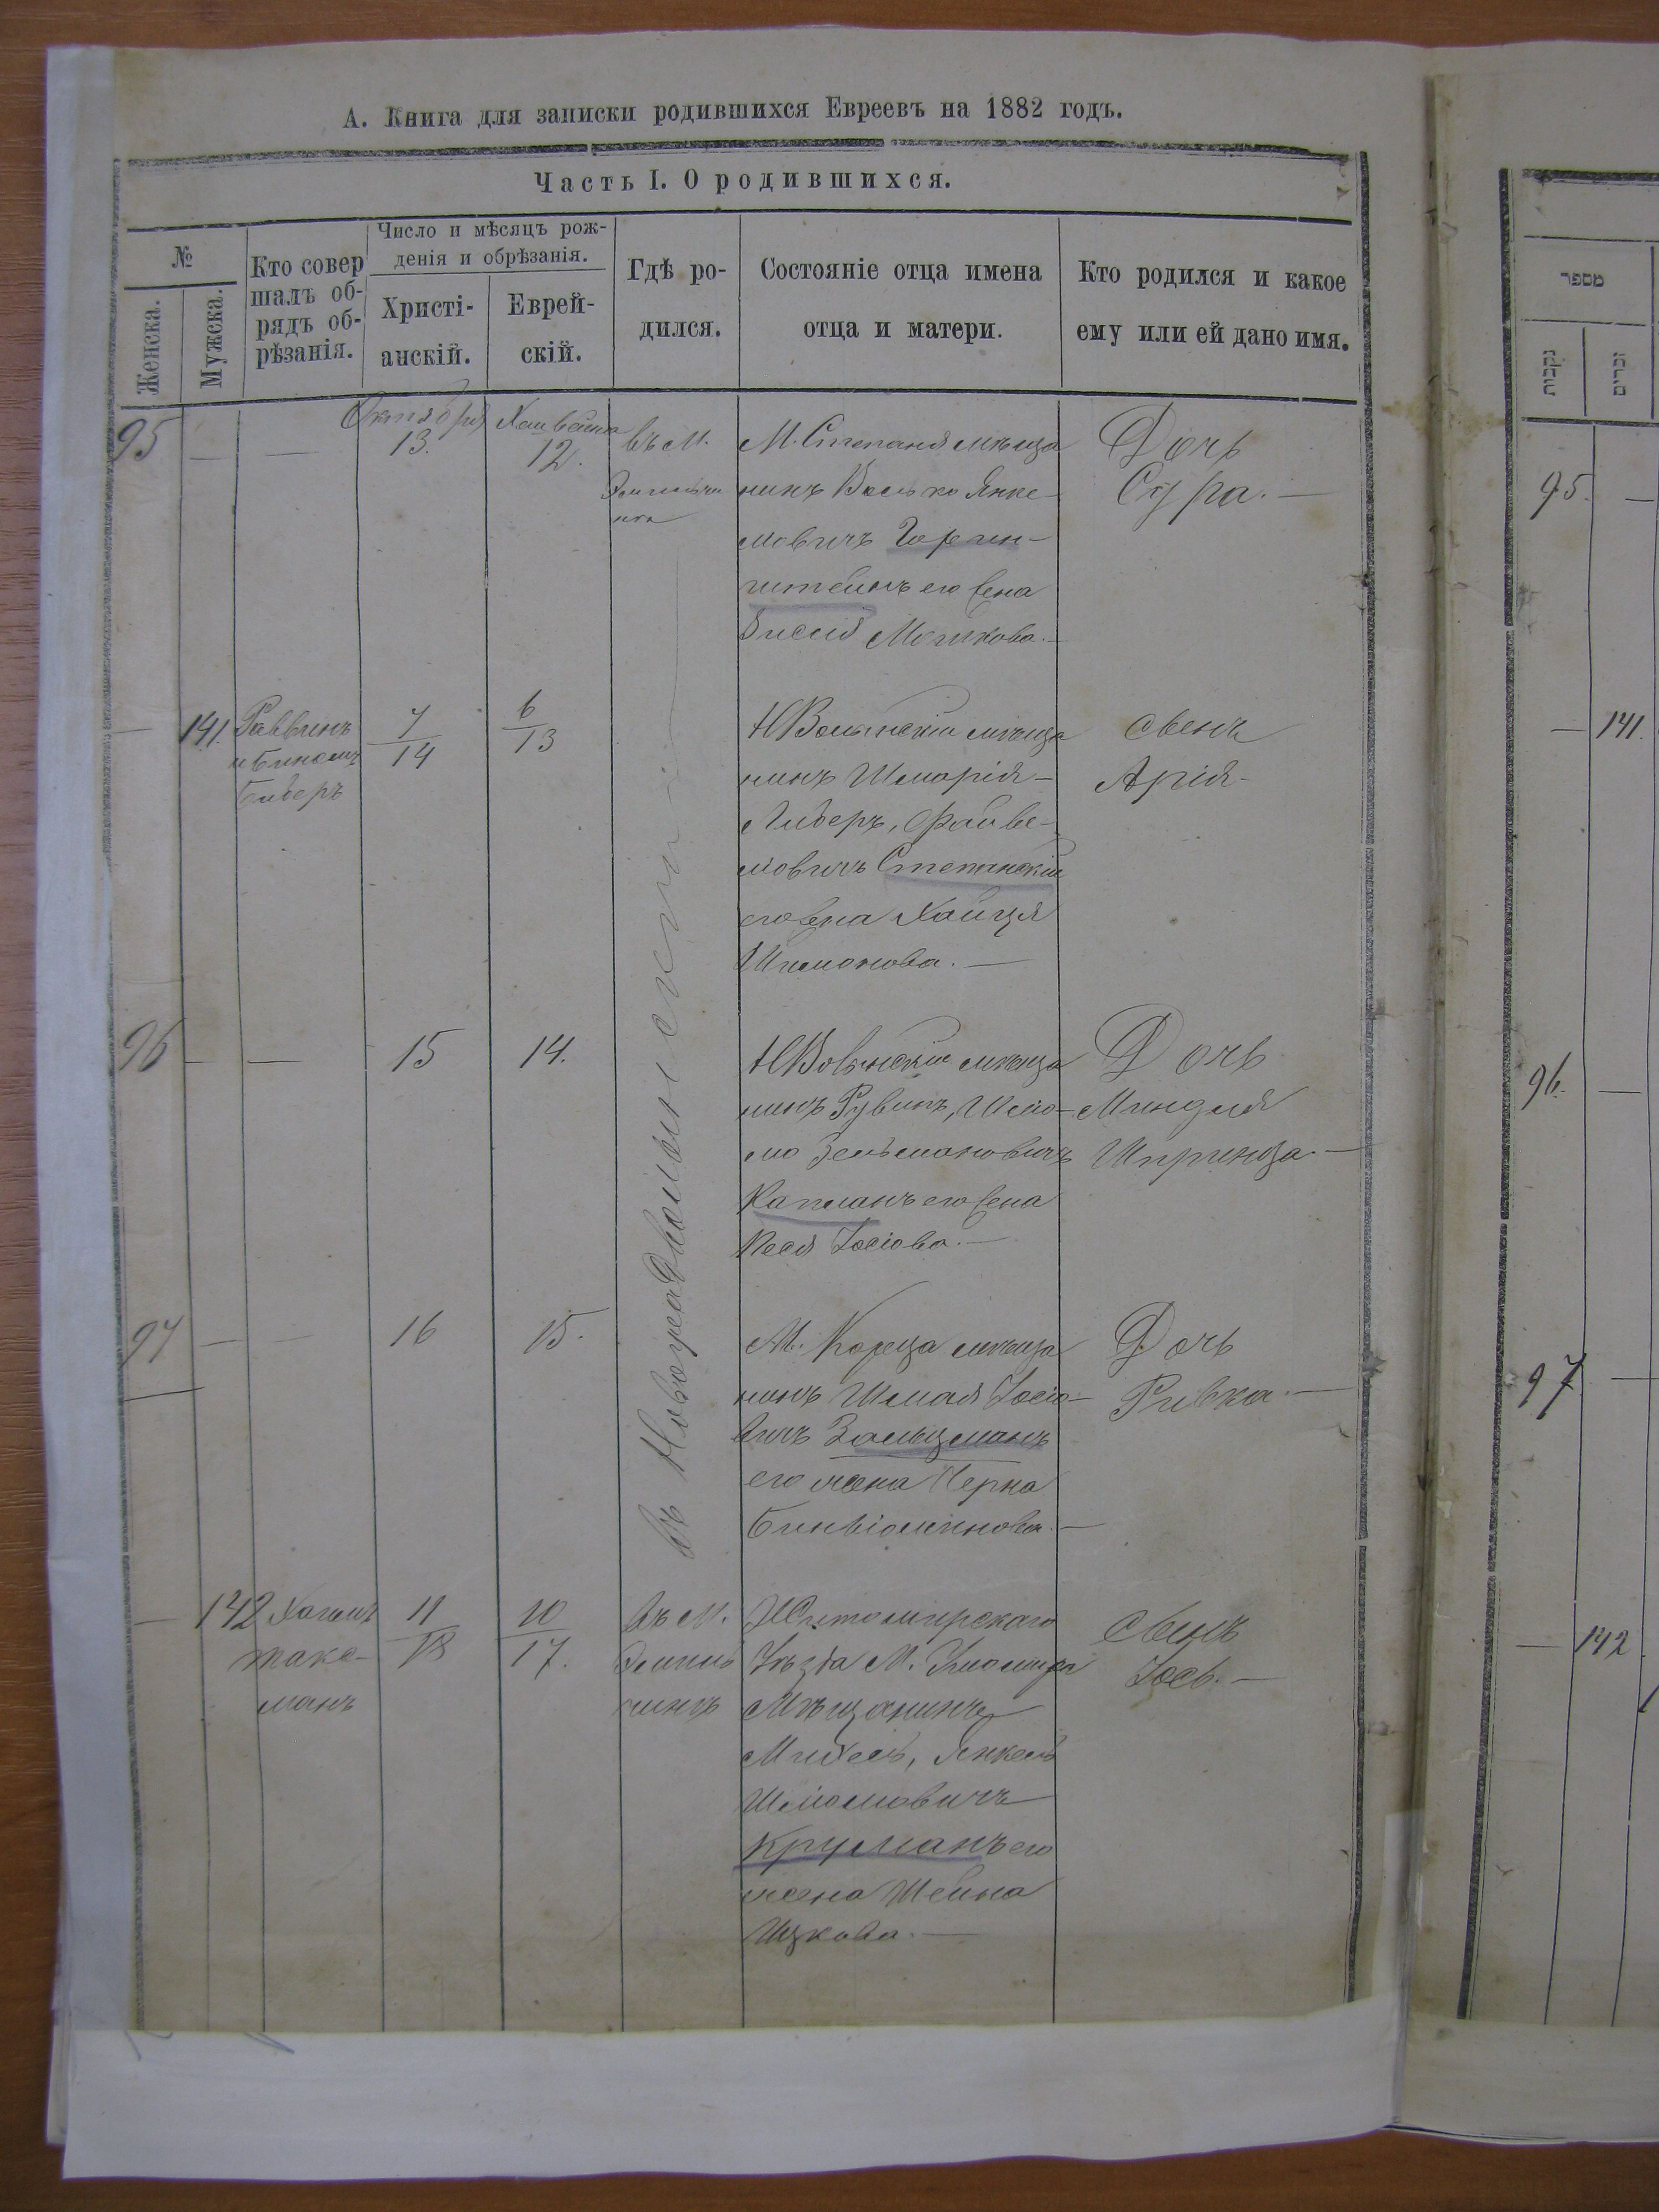 А. Книга для записки родившихся Евреевъ на 1882 годъ.
Часть I. О родившихся.
№
Женска.
Мужска.
Кто совер
шалъ об-
рядъ об-
рѣзанія.
Число и мѣсяцъ рож-
денія и обрѣзанія.
Христі-
анскій.
Еврей-
скій.
Гдѣ ро-
дился.
Состояніе отца имена
отца и матери.
Кто родился и какое
ему или ей дано имя.
95 — —
Октября
13.
12.
въ М.
М. Степаня мѣща
нинъ Васько Янке-
левичъ
штейнъ его жена
Мошкова. —
Дочь
Сура. —
— 141.
Раввинъ
Биберъ
7
14
6
13
НВолынскій мѣща
нинъ Шмарія-
Либеръ, Файве-
ловичъ Степанскій
его жена Хайця
Шимонова. —
Сынъ
Арія-
96 — —
15
14.
НВолынскій мѣща
нинъ Рувинъ, Шмо-
Зельмановичъ
Капланъ его жена
Песя Іосіова. —
Дочь
Миндля
Шпринца. —
97 — —
16
15.
М. Кореца мѣща
нинъ Шмая Іосіо-
вичъ Зальцманъ
его жена Черна
Биньіоминова. —
Дочь
Ривка. —
въ Новоградволынскѣ
— 142
Хаимъ
11
18
10
17.
въ М.
Житомирскаго
Уѣзда М.
Мѣщанинъ
Михель, Янкель
Шліомовичъ
Круманъ его
жена Шейна
Ицкова. —
Сынъ
Іось. —
מספר
נקבות
זכרים
95. —
— 141.
96. —
97 —
— 142